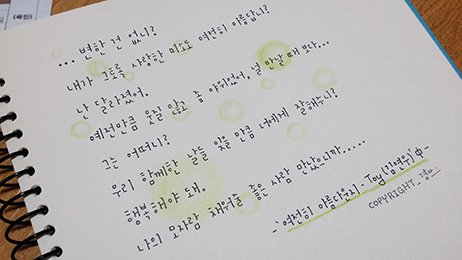 ... 변한 건 없니?
내가 그토록 사랑한 미소도 여전히 아름답니?
난 달라졌어,
예전만큼 웃질 않고 좀 야위었어, 널 만날 때 보다...
그는 어떠니?
우리 함께한 날들 잊을 만큼 너에게 잘해주니?
행복해야 돼.
나의 모자람 채워줄 좋은 사람 만났으니까.....
-'여전히 아름다운지 - Toy(김연우)'中-
COPYRIGHT_